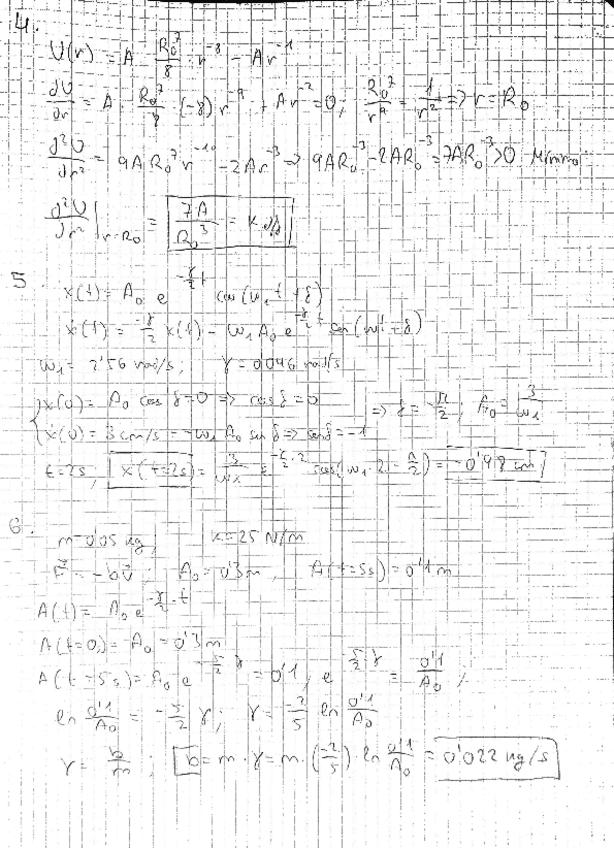 4.
U(r) = A R₀⁷/8 · r⁻⁸ - Ar⁻¹
dU/dr = A · R₀⁷/8 (-8) r⁻⁹ + Ar⁻² = 0; R₀⁷/r⁹ = 1/r² => r = R₀
d²U/dr² = 9AR₀⁷r⁻¹⁰ - 2Ar⁻³ => 9AR₀⁻³ - 2AR₀⁻³ = 7AR₀⁻³ > 0 Mínimo
d²U/dr²|r=R₀ = 7A/R₀³ = K
5.
x(t) = A₀ e^(-γ/2 t) cos(ω₁t + δ)
ẋ(t) = -γ/2 x(t) - ω₁A₀e^(-γ/2 t) sen(ω₁t + δ)
ω₁ = 2'56 rad/s, γ = 0'046 rad/s
x(0) = A₀ cos δ = 0 => cos δ = 0 => δ = -π/2; A₀ = 3/ω₁
ẋ(0) = 3 cm/s = -ω₁A₀ sen δ => sen δ = -1
t = 2s, x(t=2s) = 3/ω₁ e^(-γ/2 · 2) cos(ω₁ · 2 - π/2) = -0'98 cm
6.
m = 0'05 kg, K = 25 N/m
F⃗ = -bv⃗, A₀ = 0'3 m, A(t=5s) = 0'1 m
A(t) = A₀ e^(-γ/2 · t)
A(t=0) = A₀ = 0'3 m
A(t=5s) = A₀ e^(-5/2 γ) = 0'1, e^(-5/2 γ) = 0'1/A₀;
ln 0'1/A₀ = -5/2 γ; γ = -2/5 ln 0'1/A₀
γ = b/m; b = m · γ = m · (-2/5) · ln 0'1/A₀ = 0'022 kg/s